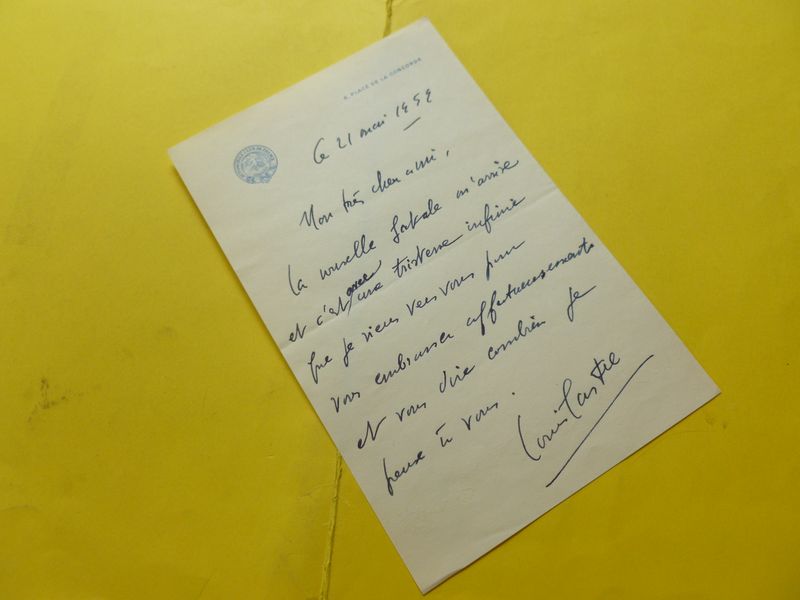 6, PLACE DE LA CONCORDE
Ce 21 mai 1959
Mon très cher ami,
La nouvelle fatale m'arrive
et c'est avec une tristesse infinie
que je viens vers vous pour
vous embrasser affectueusement
et vous dire combien je
pense à vous.
Louis